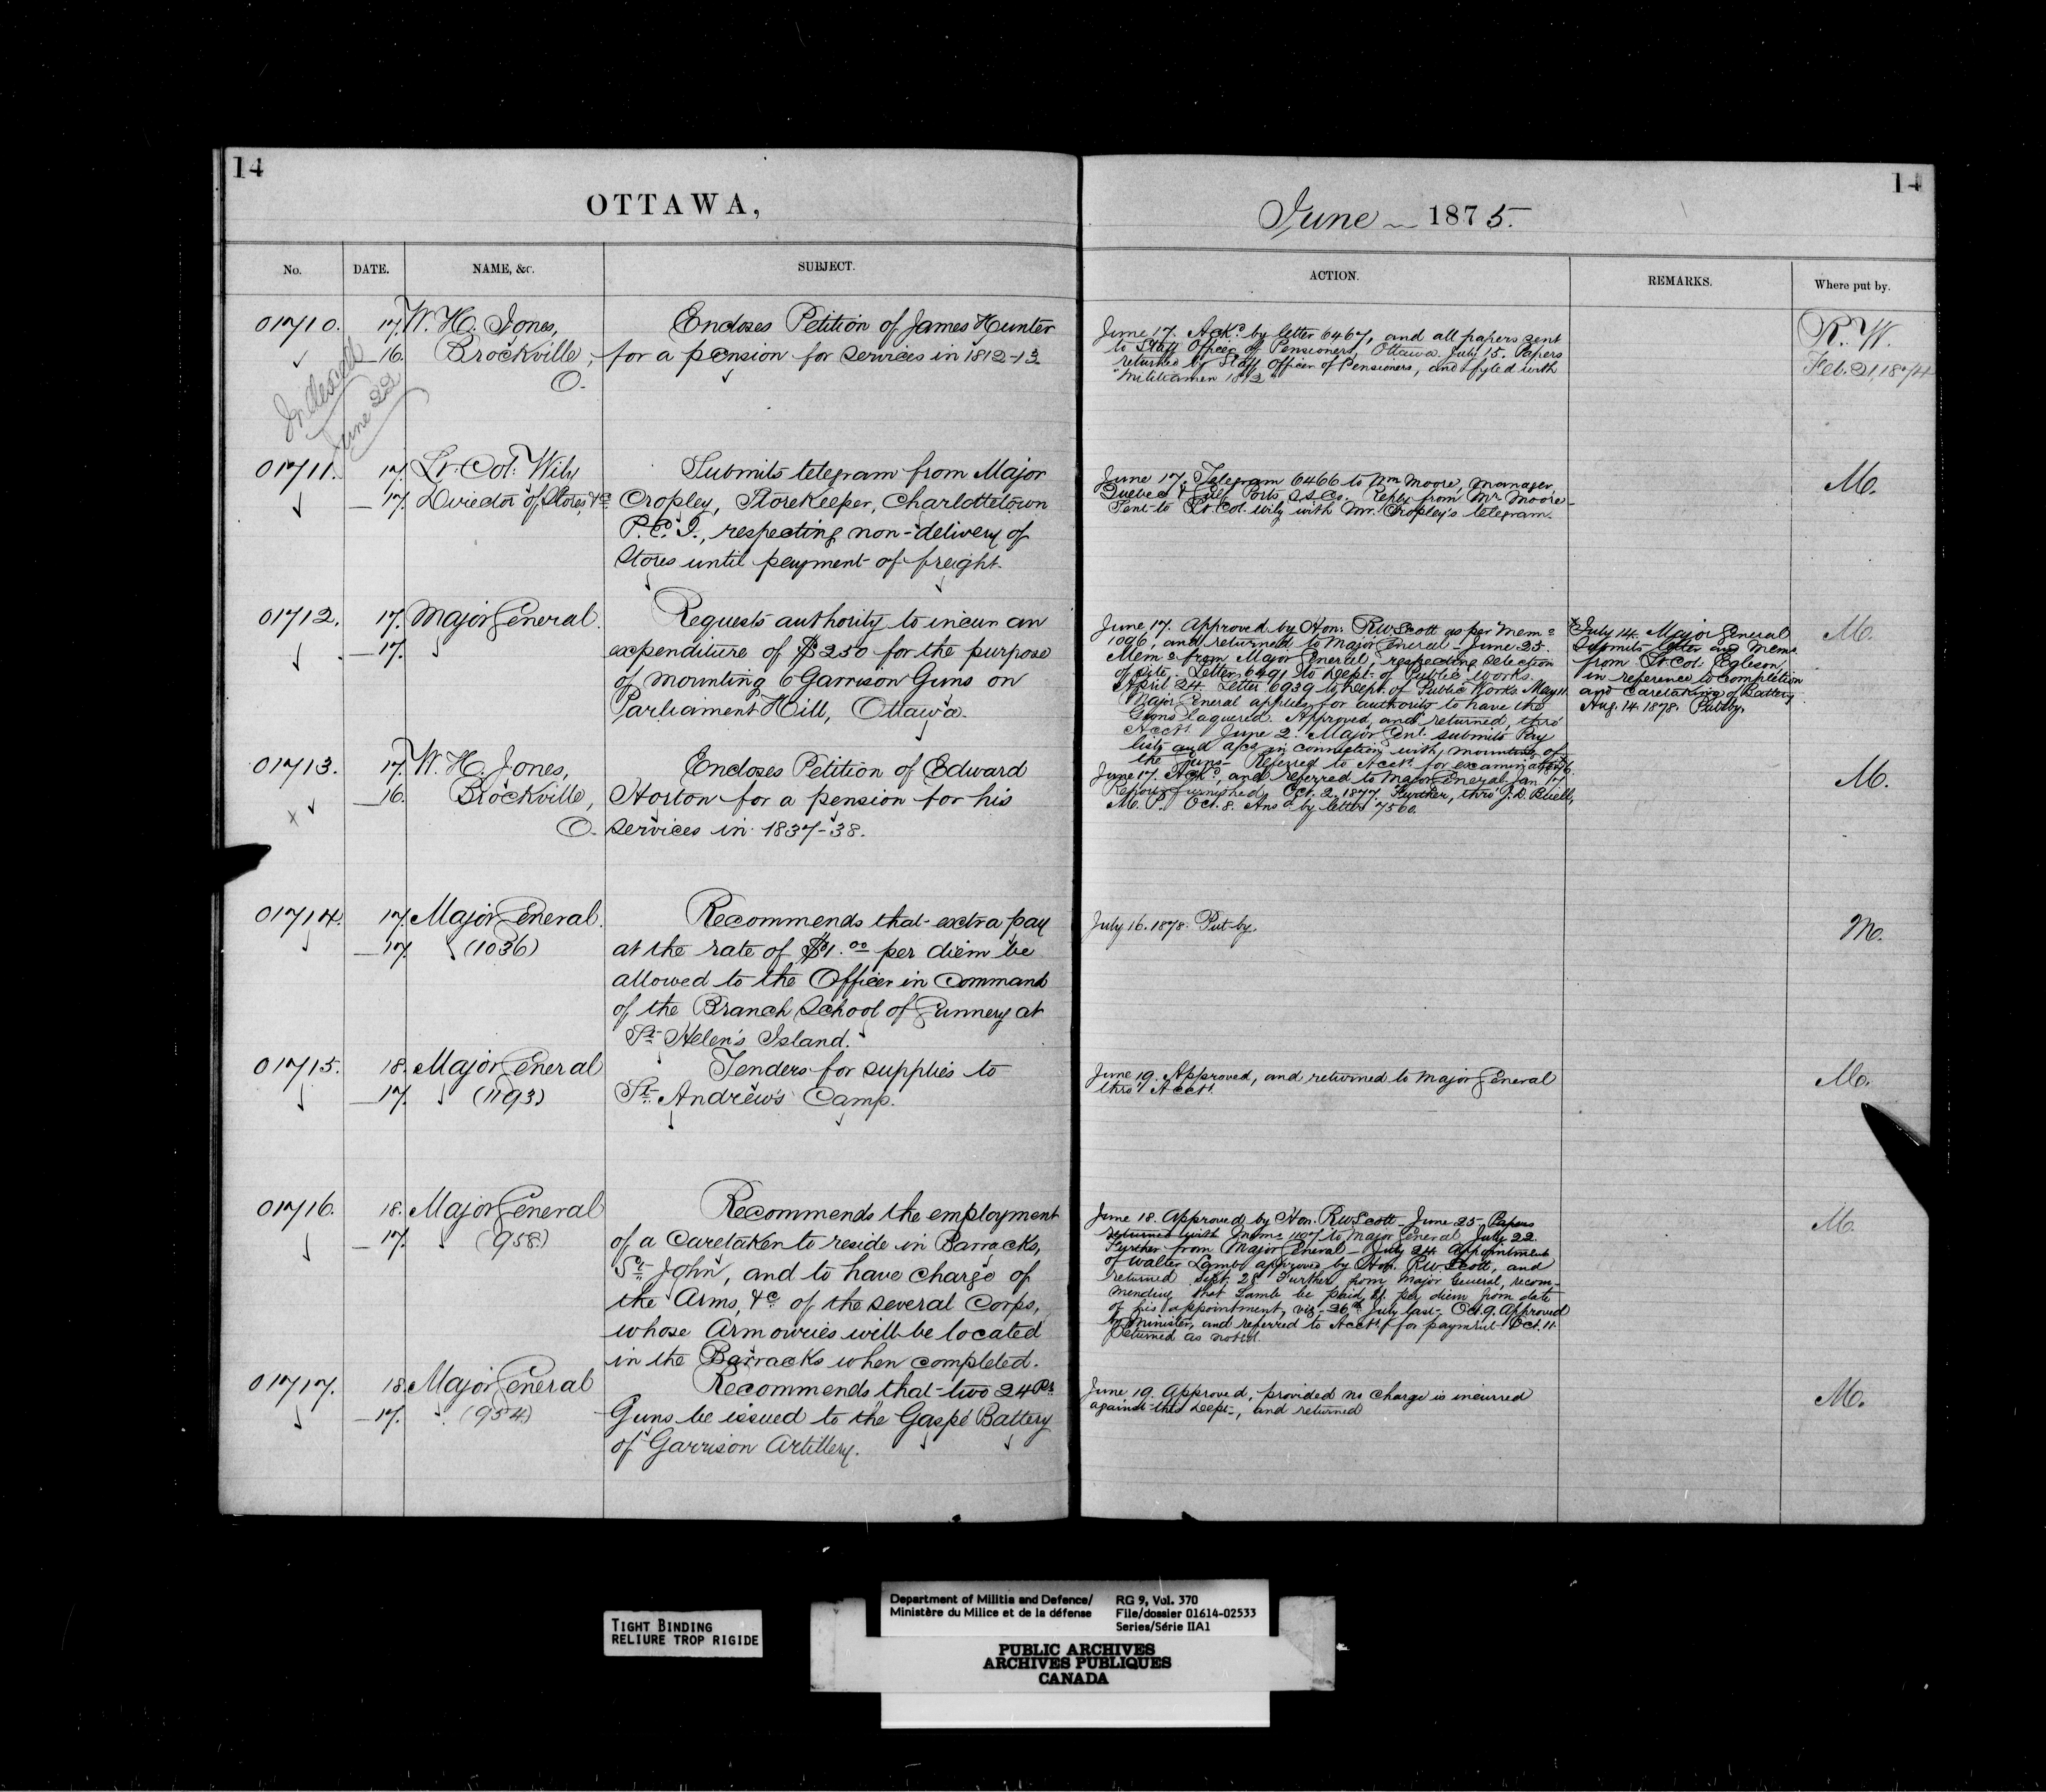 14
OTTAWA,
No. DATE. NAME, &c. SUBJECT.
01710. 17. W. H. Jones, Encloses Petition of James Hunter
16. Brockville, for a pension for services in 1812-13
O.
June 22
01711. 17. Lt. Col. Wily Submits telegram from Major
17. Director of Stores, &c Cropley, Storekeeper, Charlottetown
P.E.I., respecting non-delivery of
Stores until payment of freight.
01712. 17. Major General. Requests authority to incur an
17. expenditure of $250 for the purpose
of mounting 6 Garrison Guns on
Parliament Hill, Ottawa.
01713. 17. W. H. Jones, Encloses Petition of Edward
16. Brockville, Horton for a pension for his
O. services in 1837-38.
01714. 17. Major General. Recommends that extra pay
17. (1036) at the rate of $1.00 per diem be
allowed to the Officer in Command
of the Branch School of Gunnery at
St. Helen's Island.
01715. 18. Major General Tenders for supplies to
17. (1193) St. Andrew's Camp.
01716. 18. Major General Recommends the employment
17. (958) of a Caretaker to reside in Barracks,
St. John, and to have charge of
the Arms, &c of the several Corps,
whose Armouries will be located
in the Barracks when completed.
01717. 18. Major General Recommends that two 24 Pr.
17. (954) Guns be issued to the Gaspé Battery
of Garrison Artillery.
14
June 1875.
ACTION. REMARKS. Where put by.
June 17. Ackd. by letter 6467, and all papers sent
to Staff Officer of Pensioners, Ottawa. July 15. Papers
returned by Staff Officer of Pensioners, and fyled with
"Militiamen 1812"
R. W.
Feb. 21, 1874
June 17. Telegram 6466 to Wm Moore, Manager
Quebec & Gulf Ports S.S. Co. Reply from Mr Moore
Sent to Lt Col. Wily with Mr. Cropley's telegram.
M.
June 17. Approved by Hon. R W Scott as per Memo
1096, and returned to Major General. June 25.
Memo from Major General, respecting selection
of site. Letter 6491 to Dept. of Public Works.
April 24. Letter 6939 to Dept. of Public Works May 11
Major General applies for authority to have the
Guns laquered. Approved and returned, thro'
Acct. June 2. Major Genl. submits Pay
lists and a/cs in connection with mounting of
the guns. Referred to Acct. for examination
July 14. Major General
Submits letter and Memo
from Lt. Col. Egleson,
in reference to completion
and caretaking of Battery.
Aug. 14. 1878. Put by.
M.
June 17. Ackd., and referred to Major General. Jan 17
Report furnished. Oct. 2. 1877. Further, thro' J. D. Buell,
M. P. Oct. 8. Ansd. by letter 7560.
M.
July 16. 1878. Put by.
M.
June 19. Approved, and returned to Major General
thro' Acct.
M.
June 18. Approved by Hon. R W Scott. June 25. Papers
returned with Memo 1107 to Major General. July 22
Further from Major General. July 24. Appointment
of Walter Lamb approved by Hon. R W Scott, and
returned. Sept. 28. Further from Major General, recom-
mending that Lamb be paid $1 per diem from date
of his appointment, viz. 26th July last. Oct. 9. Approved
by Minister, and referred to Acct. for payment. Oct. 11.
Returned as noted.
M.
June 19. Approved, provided no charge is incurred
against this Dept., and returned
M.
TIGHT BINDING
RELIURE TROP RIGIDE
Department of Militia and Defence/
Ministère du Milice et de la défense
RG 9, Vol. 370
File/dossier 01614-02533
Series/Série IIA1
PUBLIC ARCHIVES
ARCHIVES PUBLIQUES
CANADA